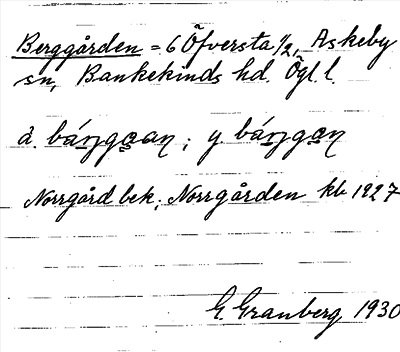 Berggården = 6 Öfversta 1/2, Askeby
sn, Bankekinds hd. Ögl. l.
ä. báŋgaan; y. báŋgan
Norrgård bek; Norrgården kb 1927
G. Granberg 1930